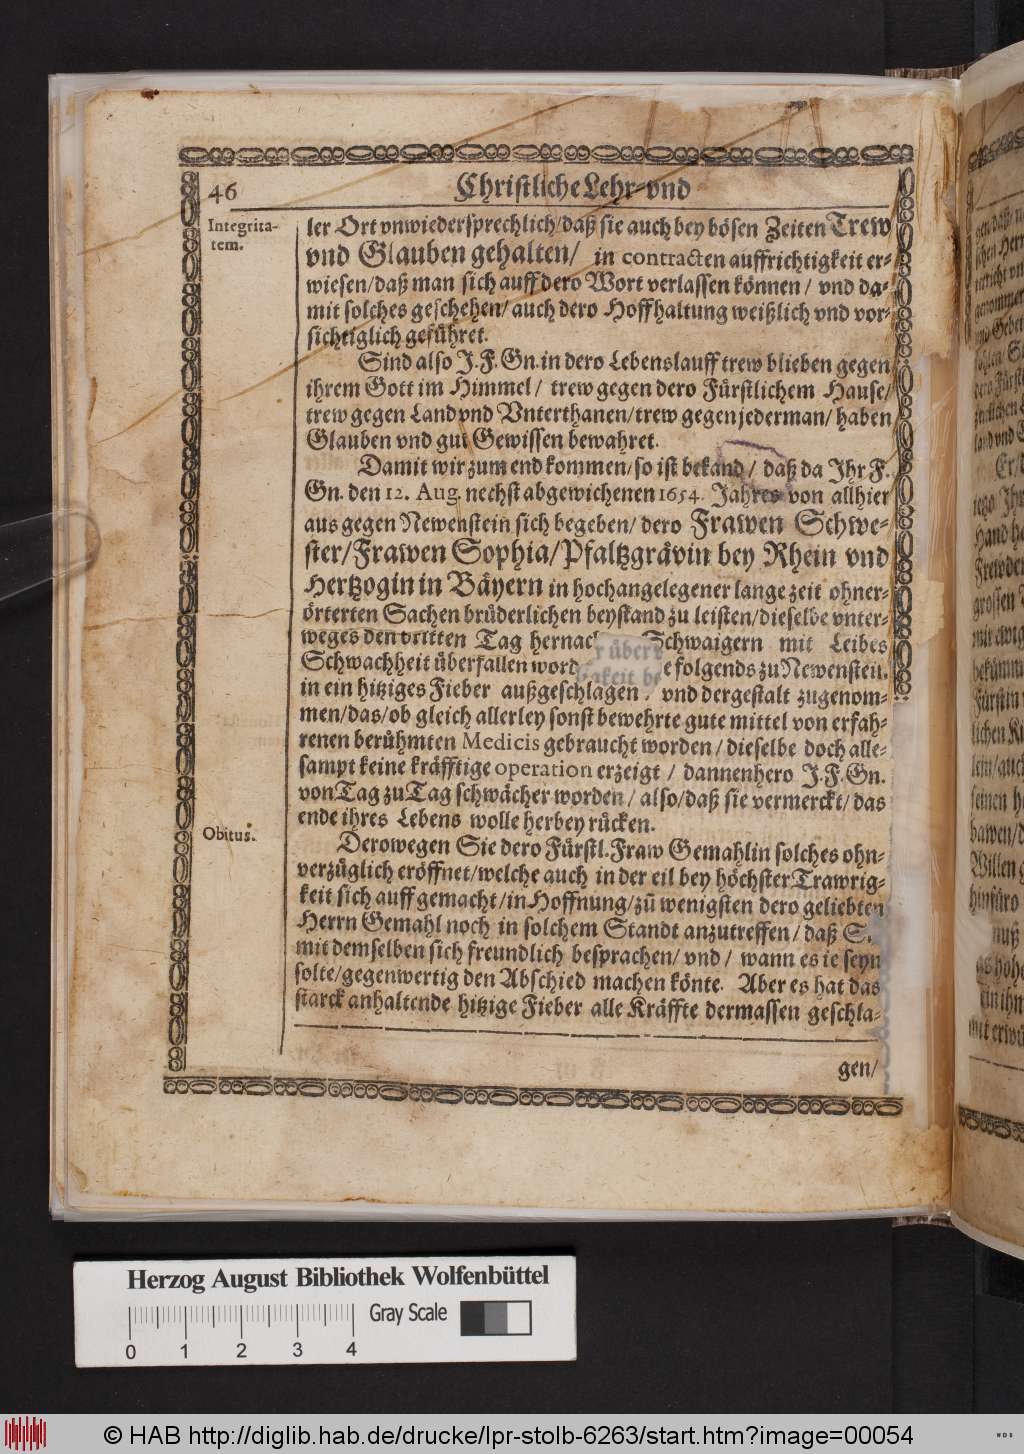 46
Christliche Lehr- vnd
Integrita-
tem.
ler Ort vnwiedersprechlich/daß sie auch bey bösen Zeiten Trew
vnd Glauben gehalten/ in contracten auffrichtigkeit er-
wiesen/daß man sich auff dero Wort verlassen können/ vnd da-
mit solches geschehen/ auch dero Hoffhaltung weißlich vnd vor-
sichtiglich geführet.
Sind also J.F.Gn. in dero Lebenslauff trew blieben gegen
ihrem Gott im Himmel/ trew gegen dero Fürstlichem Hause/
trew gegen Land vnd Vnterthanen/ trew gegen jederman/ haben
Glauben vnd gut Gewissen bewahret.
Damit wir zum end kommen/ so ist bekand/ daß da Ihr F.
Gn. den 12. Aug. nechst abgewichenen 1654. Jahres von allhier
aus gegen Newenstein sich begeben/ dero Frawen Schwe-
ster/Frawen Sophia/Pfaltzgrävin bey Rhein vnd
Hertzogin in Bäyern in hochangelegener lange zeit ohner-
örterten Sachen brüderlichen beystand zu leisten/dieselbe vnter-
weges den dritten Tag hernach Schwaigern mit Leibes
Schwachheit überfallen word r über e folgends zu Newenstein
in ein hitziges Fieber außgeschlagen gkeit be vnd dergestalt zugenom-
men/das/ob gleich allerley sonst bewehrte gute mittel von erfah-
renen berühmten Medicis gebraucht worden/ dieselbe doch alle-
sampt keine kräfftige operation erzeigt/ dannenhero J.F.Gn.
von Tag zu Tag schwächer worden/ also/daß sie vermerckt/ das
ende ihres Lebens wolle herbey rücken.
Obitus.
Derowegen Sie dero Fürstl. Fraw Gemahlin solches ohn-
verzüglich eröffnet/welche auch in der eil bey höchster Trawrig-
keit sich auff gemacht/in Hoffnung/zū wenigsten dero geliebten
Herrn Gemahl noch in solchem Standt anzutreffen/ daß S.
mit demselben sich freundlich besprachen/ vnd/ wann es ie seyn
solte/gegenwertig den Abschied machen könte. Aber es hat das
starck anhaltende hitzige Fieber alle Kräffte dermassen geschla-
gen/
Herzog August Bibliothek Wolfenbüttel
Gray Scale
0 1 2 3 4
© HAB http://diglib.hab.de/drucke/lpr-stolb-6263/start.htm?image=00054